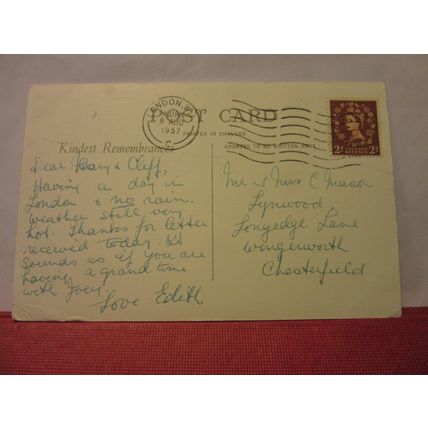 LONDON. W.
8 AUG
1957
C
POST CARD
PRINTED IN ENGLAND
Kindest Remembrances
ADDRESS TO BE WRITTEN HERE
2d 2d
Dear Mary & Cliff,
Having a day in
London & no rain.
Weather still very
hot. Thanks for letter
received today. It
sounds as if you are
having a grand time
with Joey.
Love Edith
Mr & Mrs C Mason
Lynwood
Longedge Lane
Wingerworth
Chesterfield